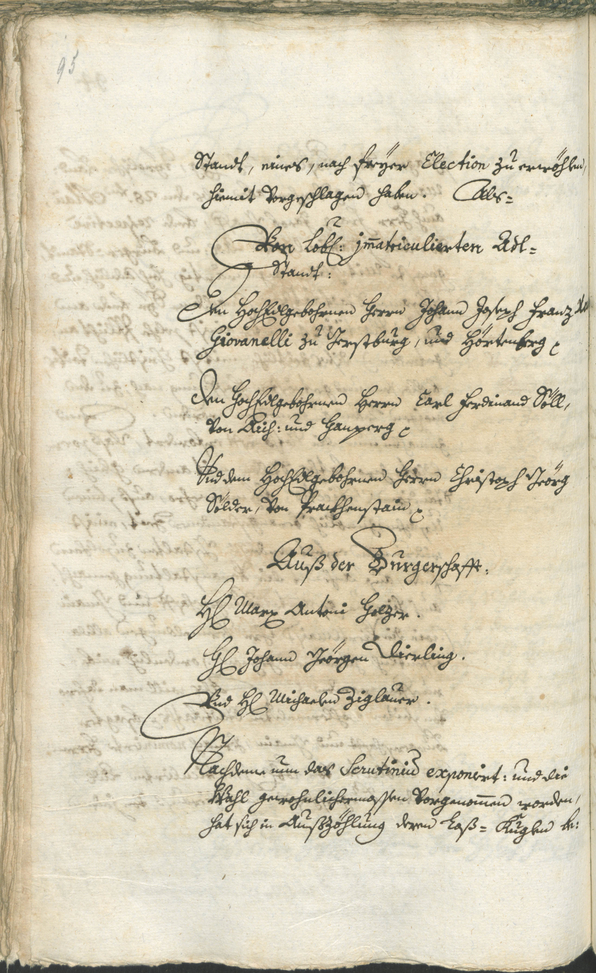 95
Standt, eines, nach freyer Election zu erwöhlen,
hiemit vorgeschlagen haben. Als=
Von Löbl: jm̃atriculierten Adl=
Standt:
Den HochEdlgebohrnen Herrn Johann Joseph Franz
Giovanelli zu Gerstburg, und Hörtenberg
Den HochEdlgebohrnen Herrn Carl Ferdinand Söll,
von Aich: und
Und dem HochEdlgebohrnen Herrn Christoph Jeörg
Sölder, von Prackhenstain
Auß der Burgerschafft:
Hl Marx Antoni Holzer.
Hl Johann Jeörgen Dierling.
Und Hl Michaelen Ziglauer.
Nachdeme nun das Scrutiniũ exponirt: und die
Wahl gewohnlichermassen vorgenom̃en worden,
hat sich in Außzöhlung deren Loß= Kuglen be: